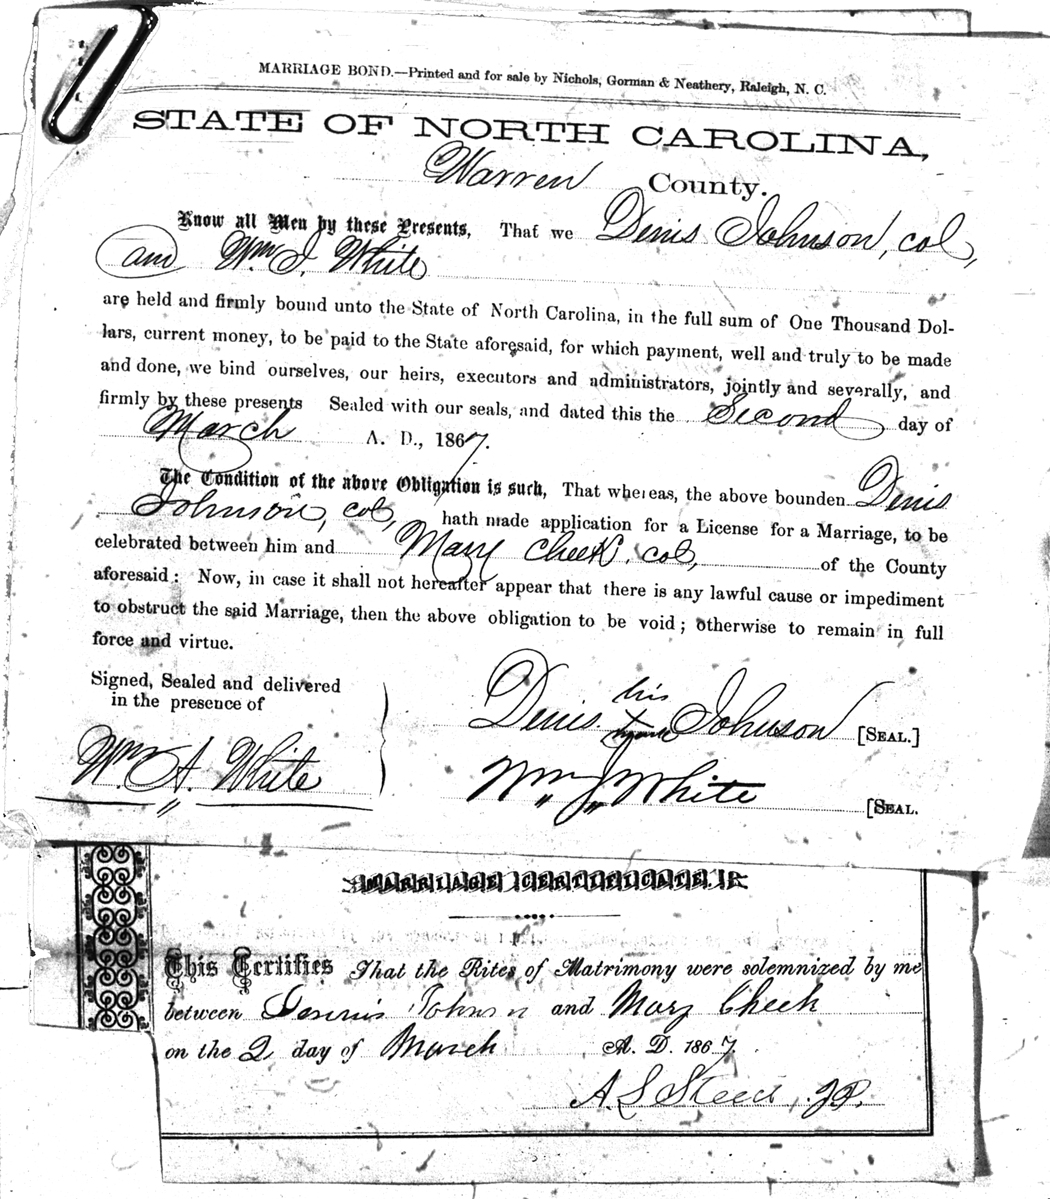 MARRIAGE BOND.—Printed and for sale by Nichols, Gorman & Neathery, Raleigh, N. C.
STATE OF NORTH CAROLINA,
Warren County.
Know all Men by these Presents, That we Denis Johnson, col,
and Wm J. White
are held and firmly bound unto the State of North Carolina, in the full sum of One Thousand Dol-
lars, current money, to be paid to the State aforesaid, for which payment, well and truly to be made
and done, we bind ourselves, our heirs, executors and administrators, jointly and severally, and
firmly by these presents Sealed with our seals, and dated this the Second day of
March A. D., 1867.
The Condition of the above Obligation is such, That whereas, the above bounden Denis
Johnson, col, hath made application for a License for a Marriage, to be
celebrated between him and Mary Cheek, col, of the County
aforesaid: Now, in case it shall not hereafter appear that there is any lawful cause or impediment
to obstruct the said Marriage, then the above obligation to be void; otherwise to remain in full
force and virtue.
Signed, Sealed and delivered
in the presence of
his
Denis X Johnson [SEAL.]
Wm. A. White
Wm J White [SEAL.
MARRIAGE CERTIFICATE.
This Certifies That the Rites of Matrimony were solemnized by me
between Dennis Johnson and Mary Cheek
on the 2 day of March A. D. 1867.
A. S. Steed, JP.